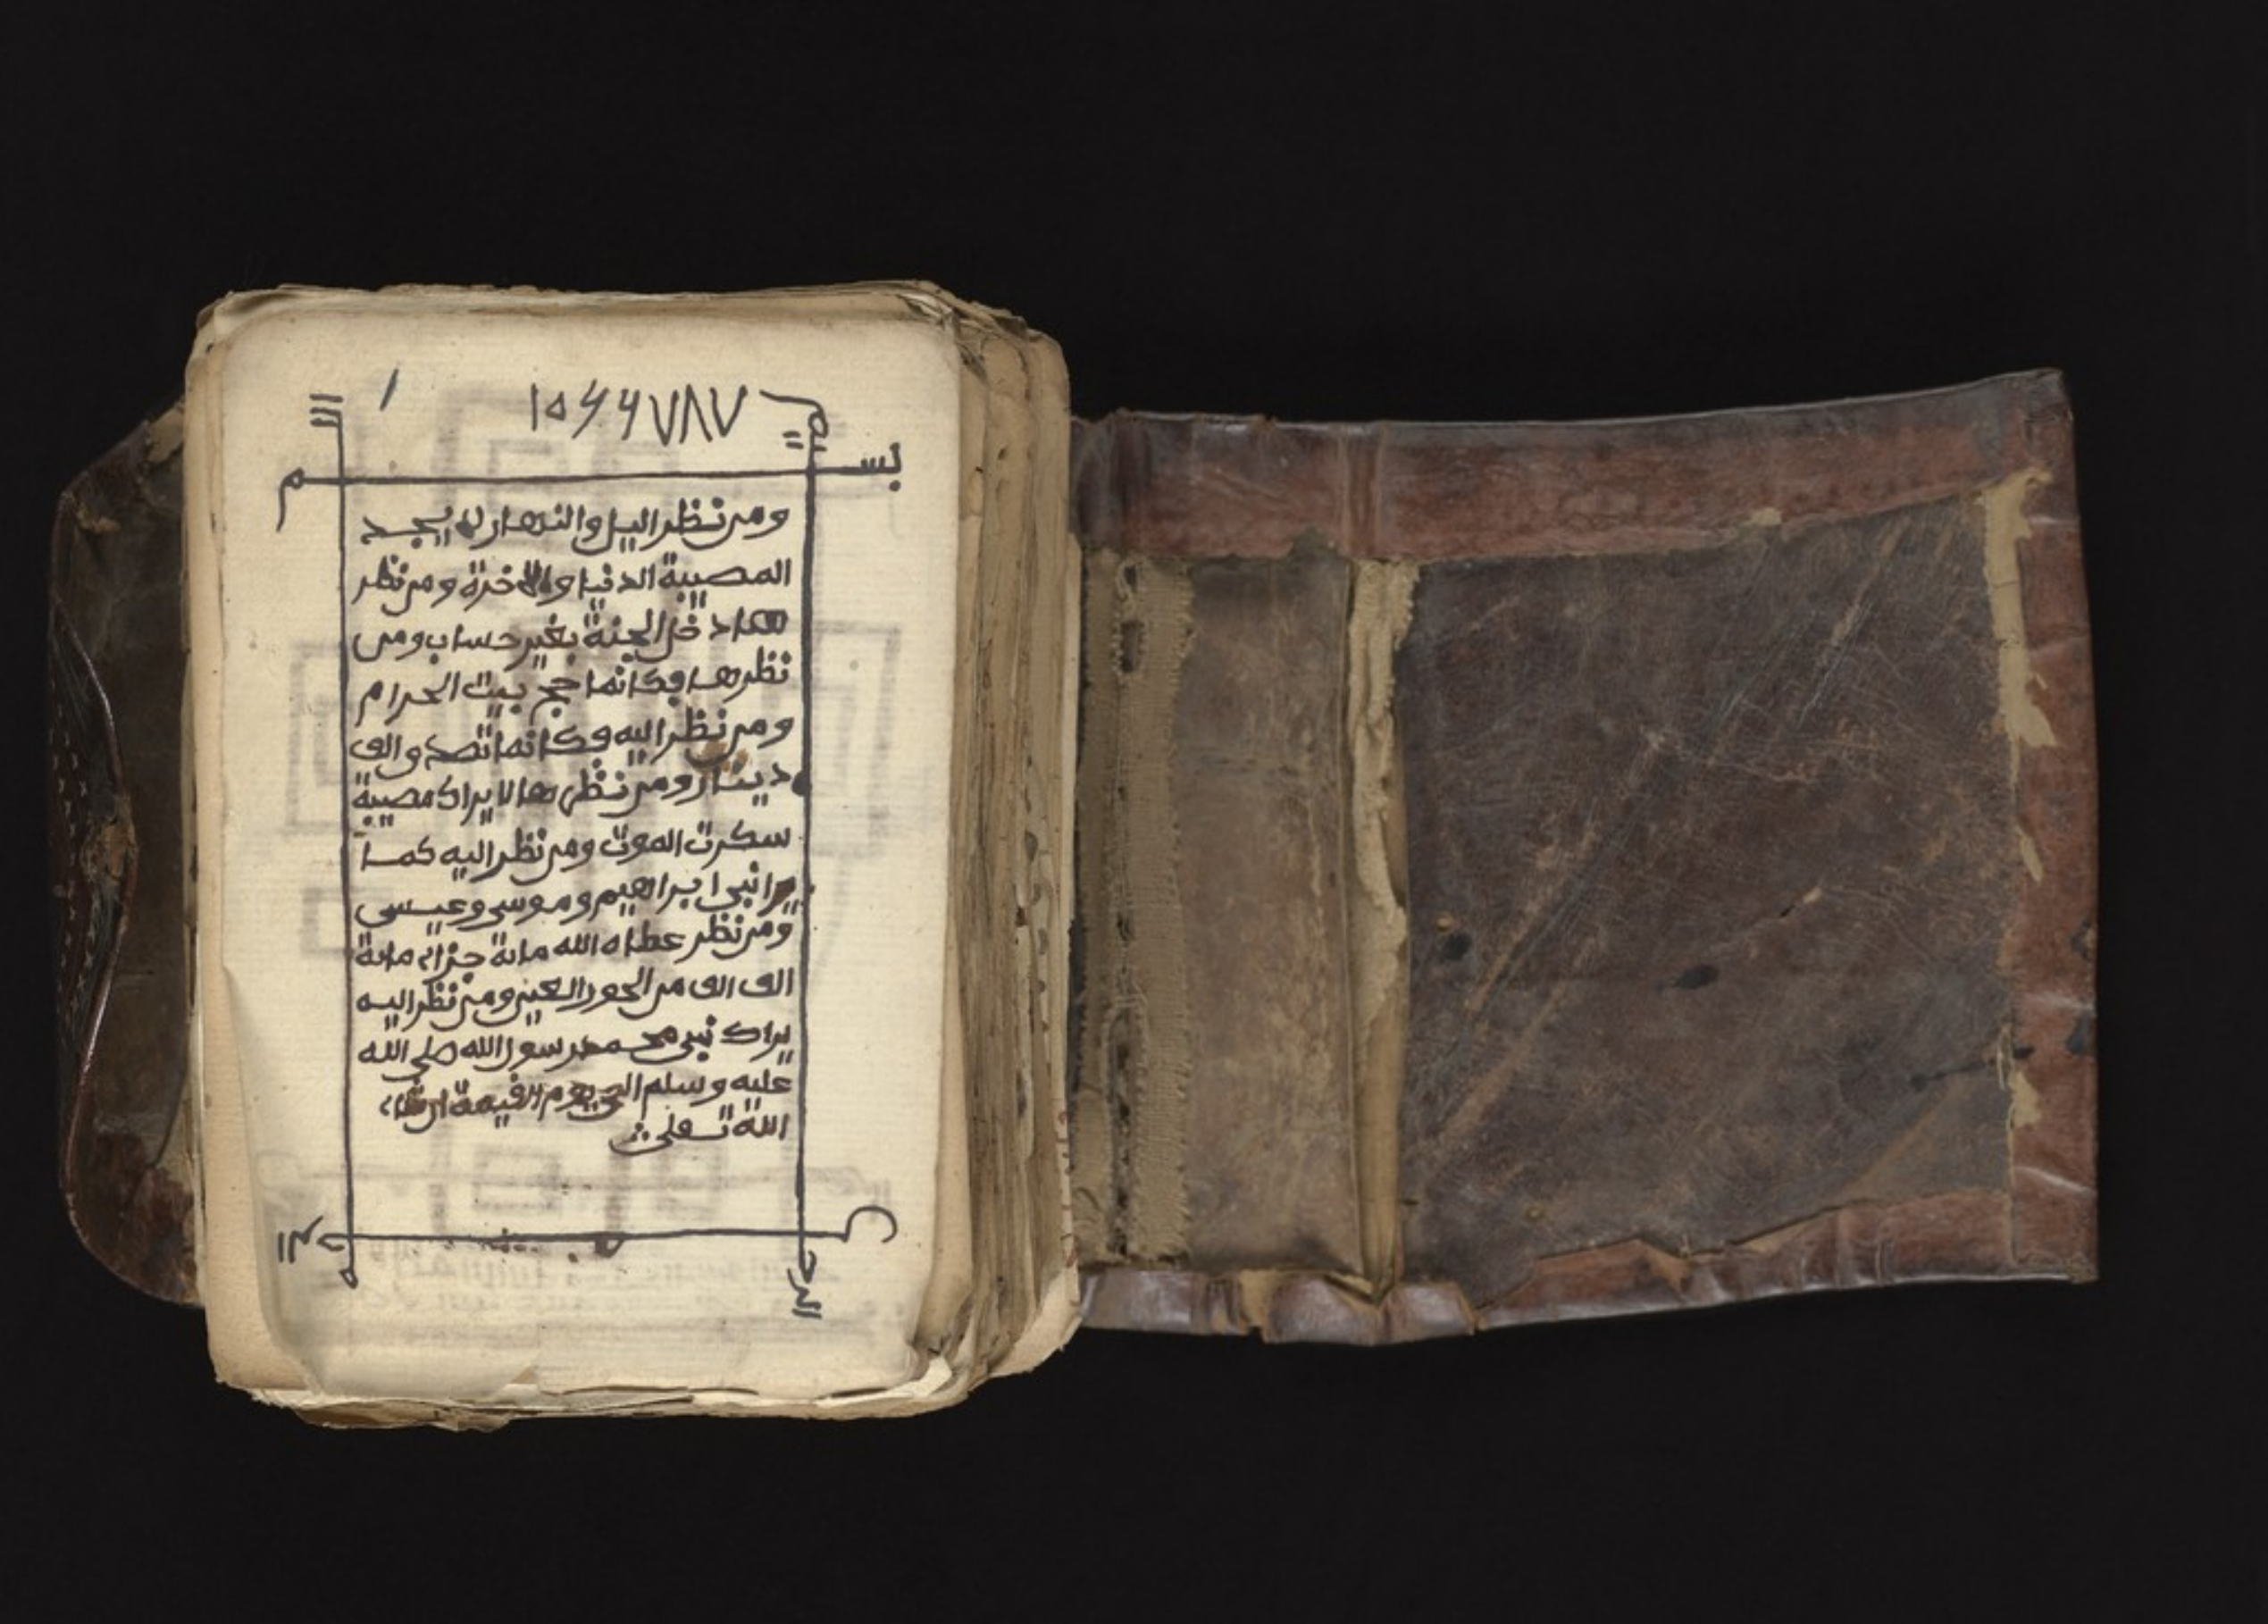 بسم
ومن نظر اليل والنهار لم يجد
المصيبة الدنيا والاخرة ومن نظر
دخل الجنة بغير حساب ومن
نظرها فكانما حج بيت الحرام
ومن نظر اليه فكانما تصدو الف
دينار ومن نظرها لا يراك مصيبة
سكرت الموت ومن نظر اليه كما
يرا نبي ابراهيم وموسى وعيسى
ومن نظر عطاه الله ماية ماية
الف الف من الحور العين ومن نظر اليه
يراك نبي محمد رسور الله صلى الله
عليه وسلم الى يوم القيمة ان شاء
الله تعلى